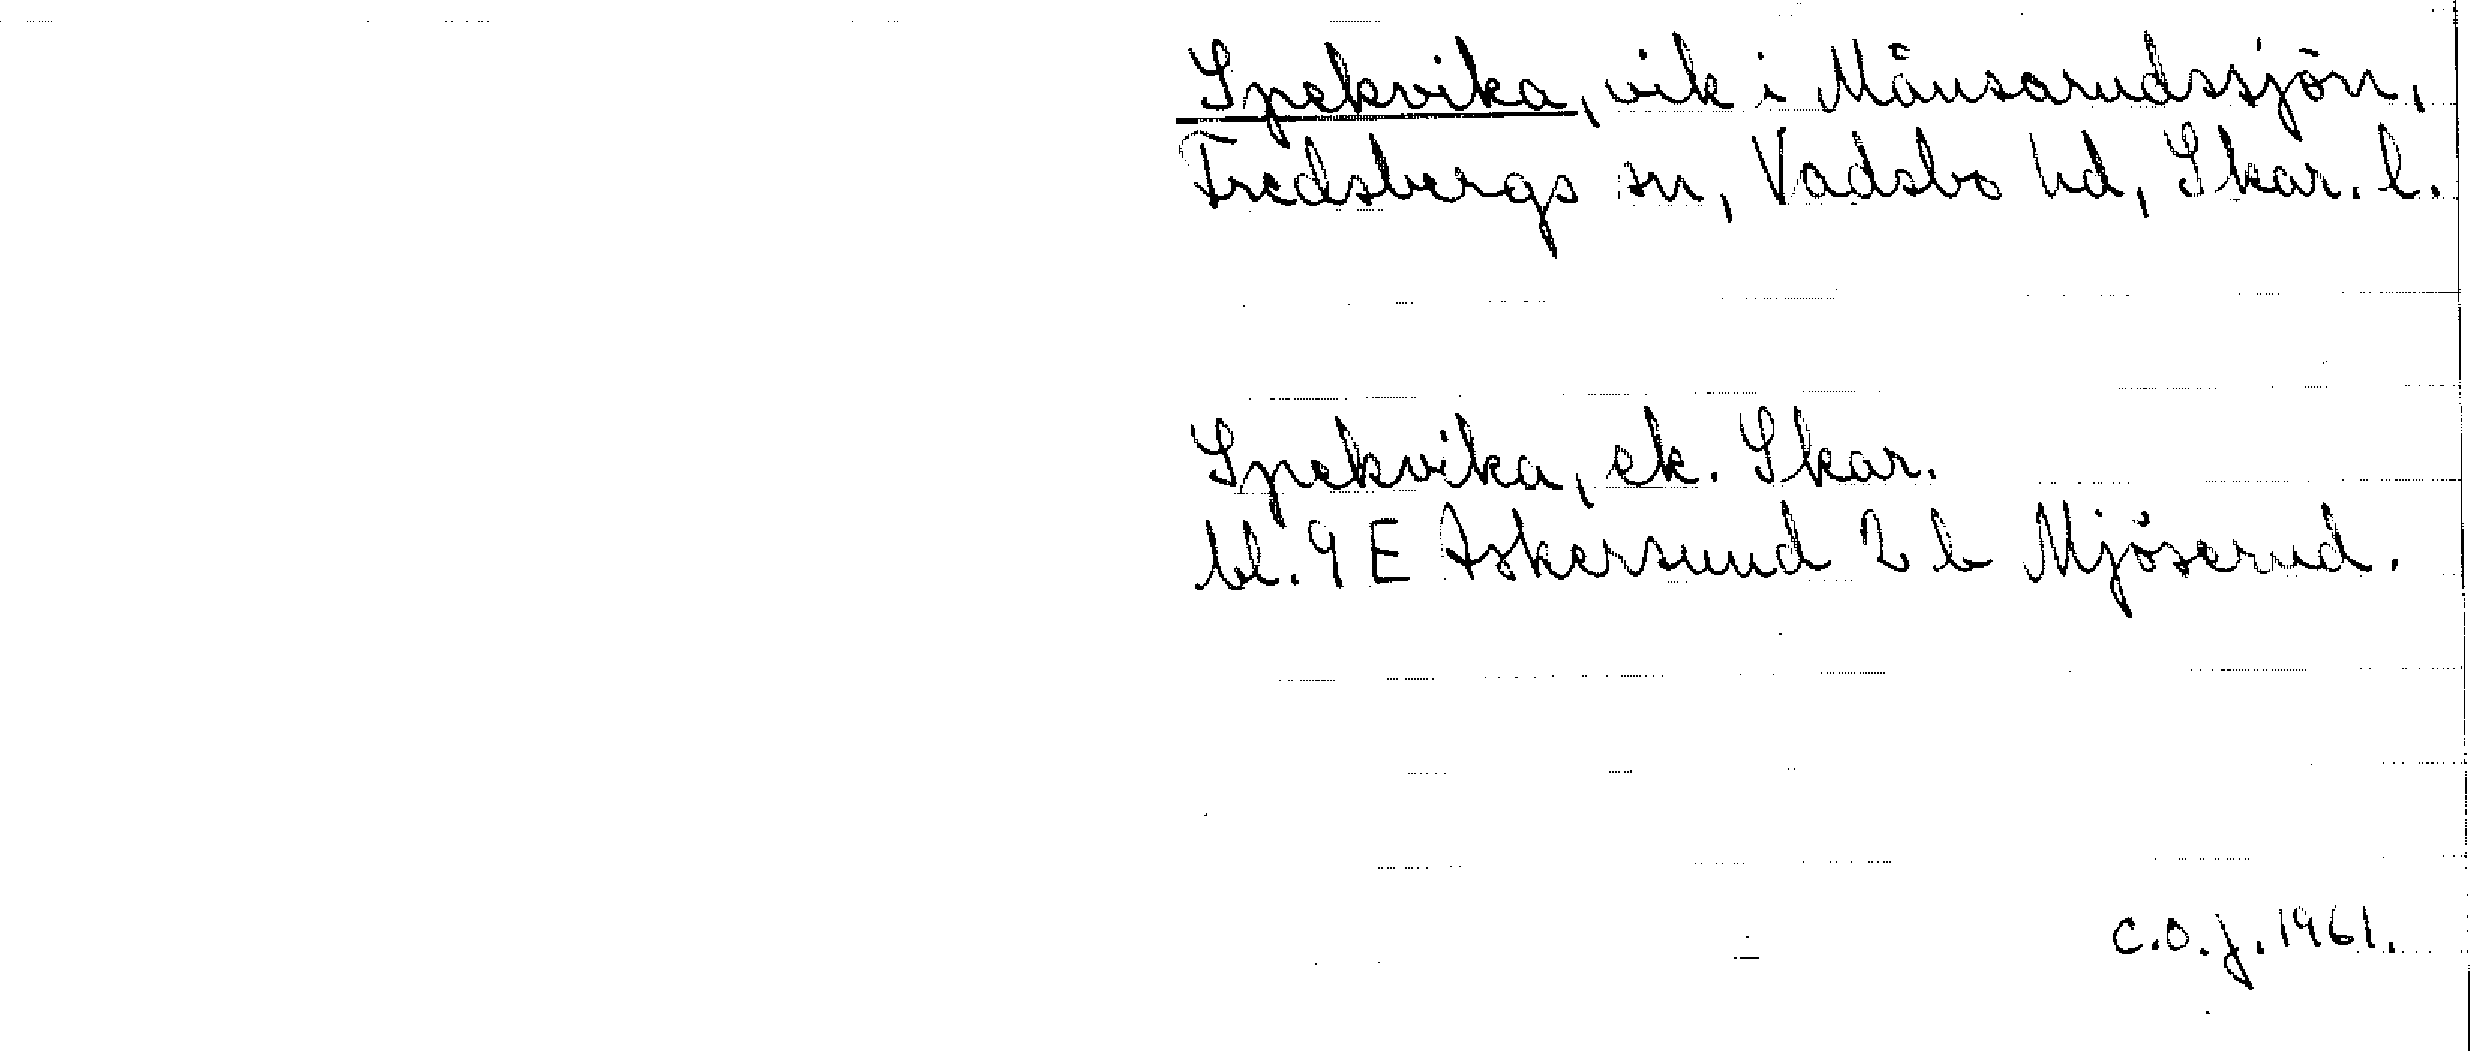 Spekvika, vik i Månsarudssjön,
Fredsbergs sn, Vadsbo hd, Skar. l.
Spekvika, ek. Skar.
bl. 9 E Askersund 2 b Mjöserud.
C.O.J. 1961.